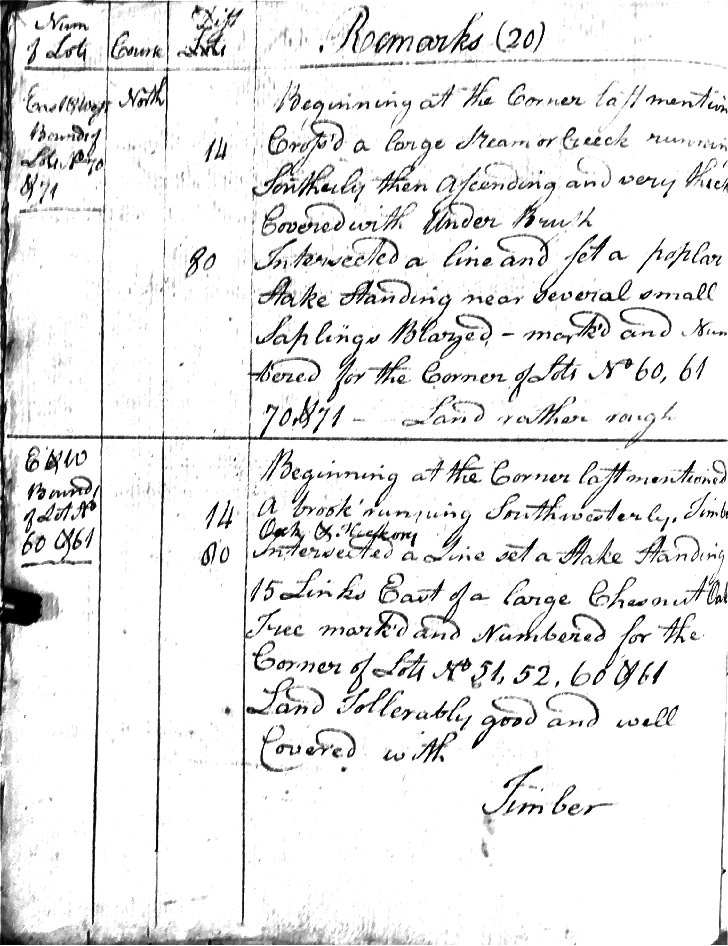 Num
of Lots
Course
Dist
Links
Remarks (20)
East & West
Bounds of
Lots No 70
& 71
North
Beginning at the Corner last mention
14
Cross'd a large Stream or Creeck runnin
Southerly then Ascending and very thick
Covered with Under Brush
80
Intersected a line and set a poplar
Stake Standing near several small
Saplings Blazed - mark'd and Num
bered for the Corner of Lots No 60, 61
70, & 71 - Land rather rough
E & W
Bounds
of Lot No
60 & 61
Beginning at the Corner last mentioned
14
A brook running Southwesterly, Timbe
Oak & Hickory
80
Intersected a Line set a Stake Standing
15 Links East of a large Chesnut Oak
Tree mark'd and Numbered for the
Corner of Lots No 51, 52, 60 & 61
Land Tollerably good and well
Covered with
Timber